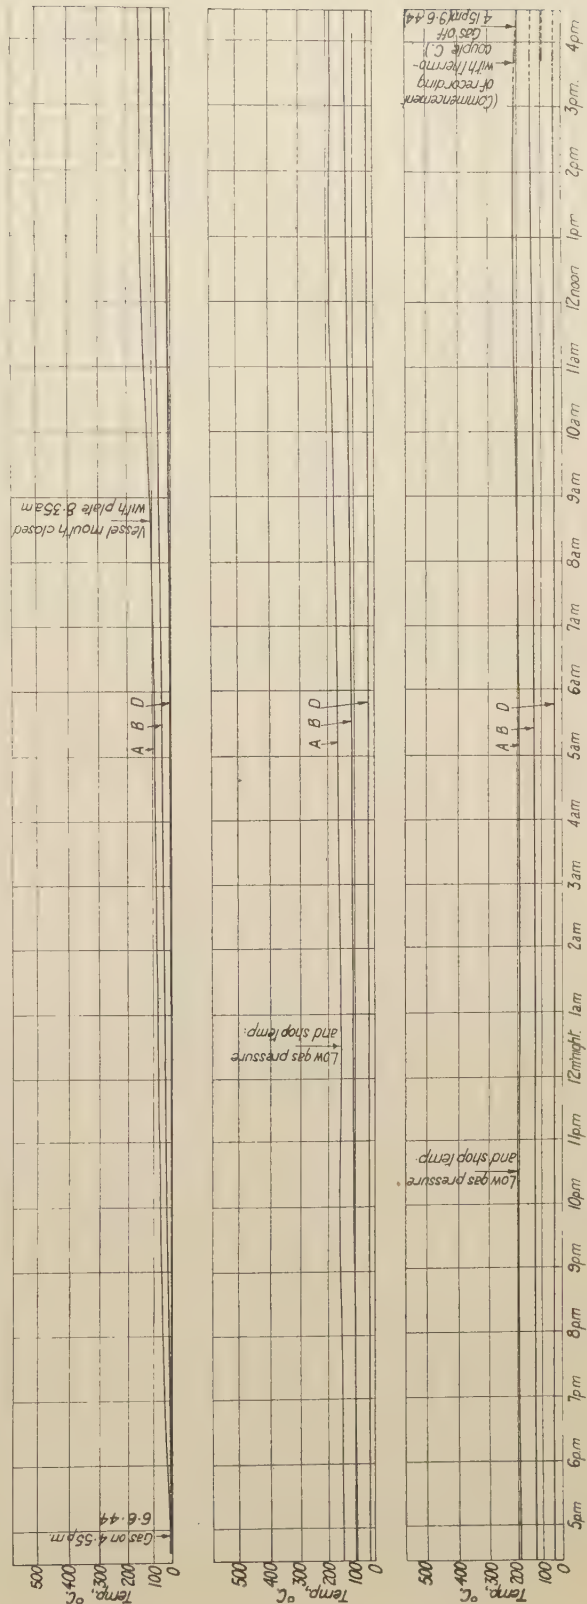 500
400
300
200
100
0
Temp, °C
Gas on 4·55 p.m.
6·6·44
A
B
D
Vessel mouth closed
with plate 8·35am
500
400
300
200
100
0
Temp, °C
Low gas pressure
and shop temp:
A
B
D
500
400
300
200
100
0
Temp, °C
Low gas pressure
and shop temp.
A
B
D
(Commencement
of recording
with thermo-
couple C.)
Gas off
4·15pm(9·6·44)
5pm
6pm
7pm
8pm
9pm
10pm
11pm
12m'night.
1am
2am
3am
4am
5am
6am
7am
8am
9am
10am
11am
12noon
1pm
2pm
3pm.
4pm